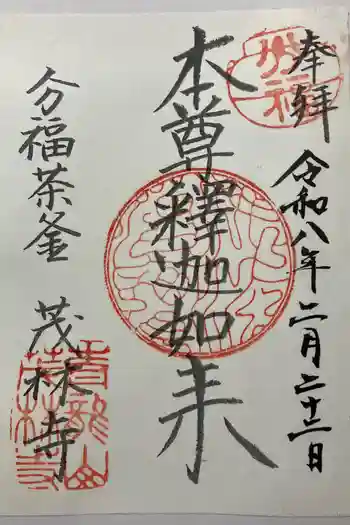 奉拝
令和八年二月二十三日
本尊釋迦如来
分福茶釜 茂林寺
青龍山
茂林寺